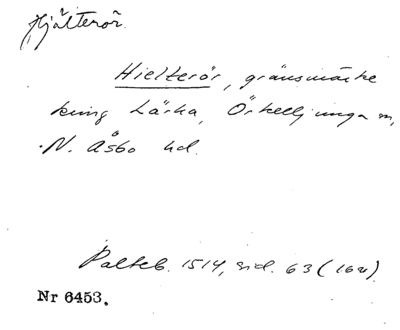 Hjälterör.
Hielterör, gränsmärke
kring Lärka, Örkelljunga sn,
N. Åsbo hd.
Palteb. 1514, sid. 63 (
Nr 6453.